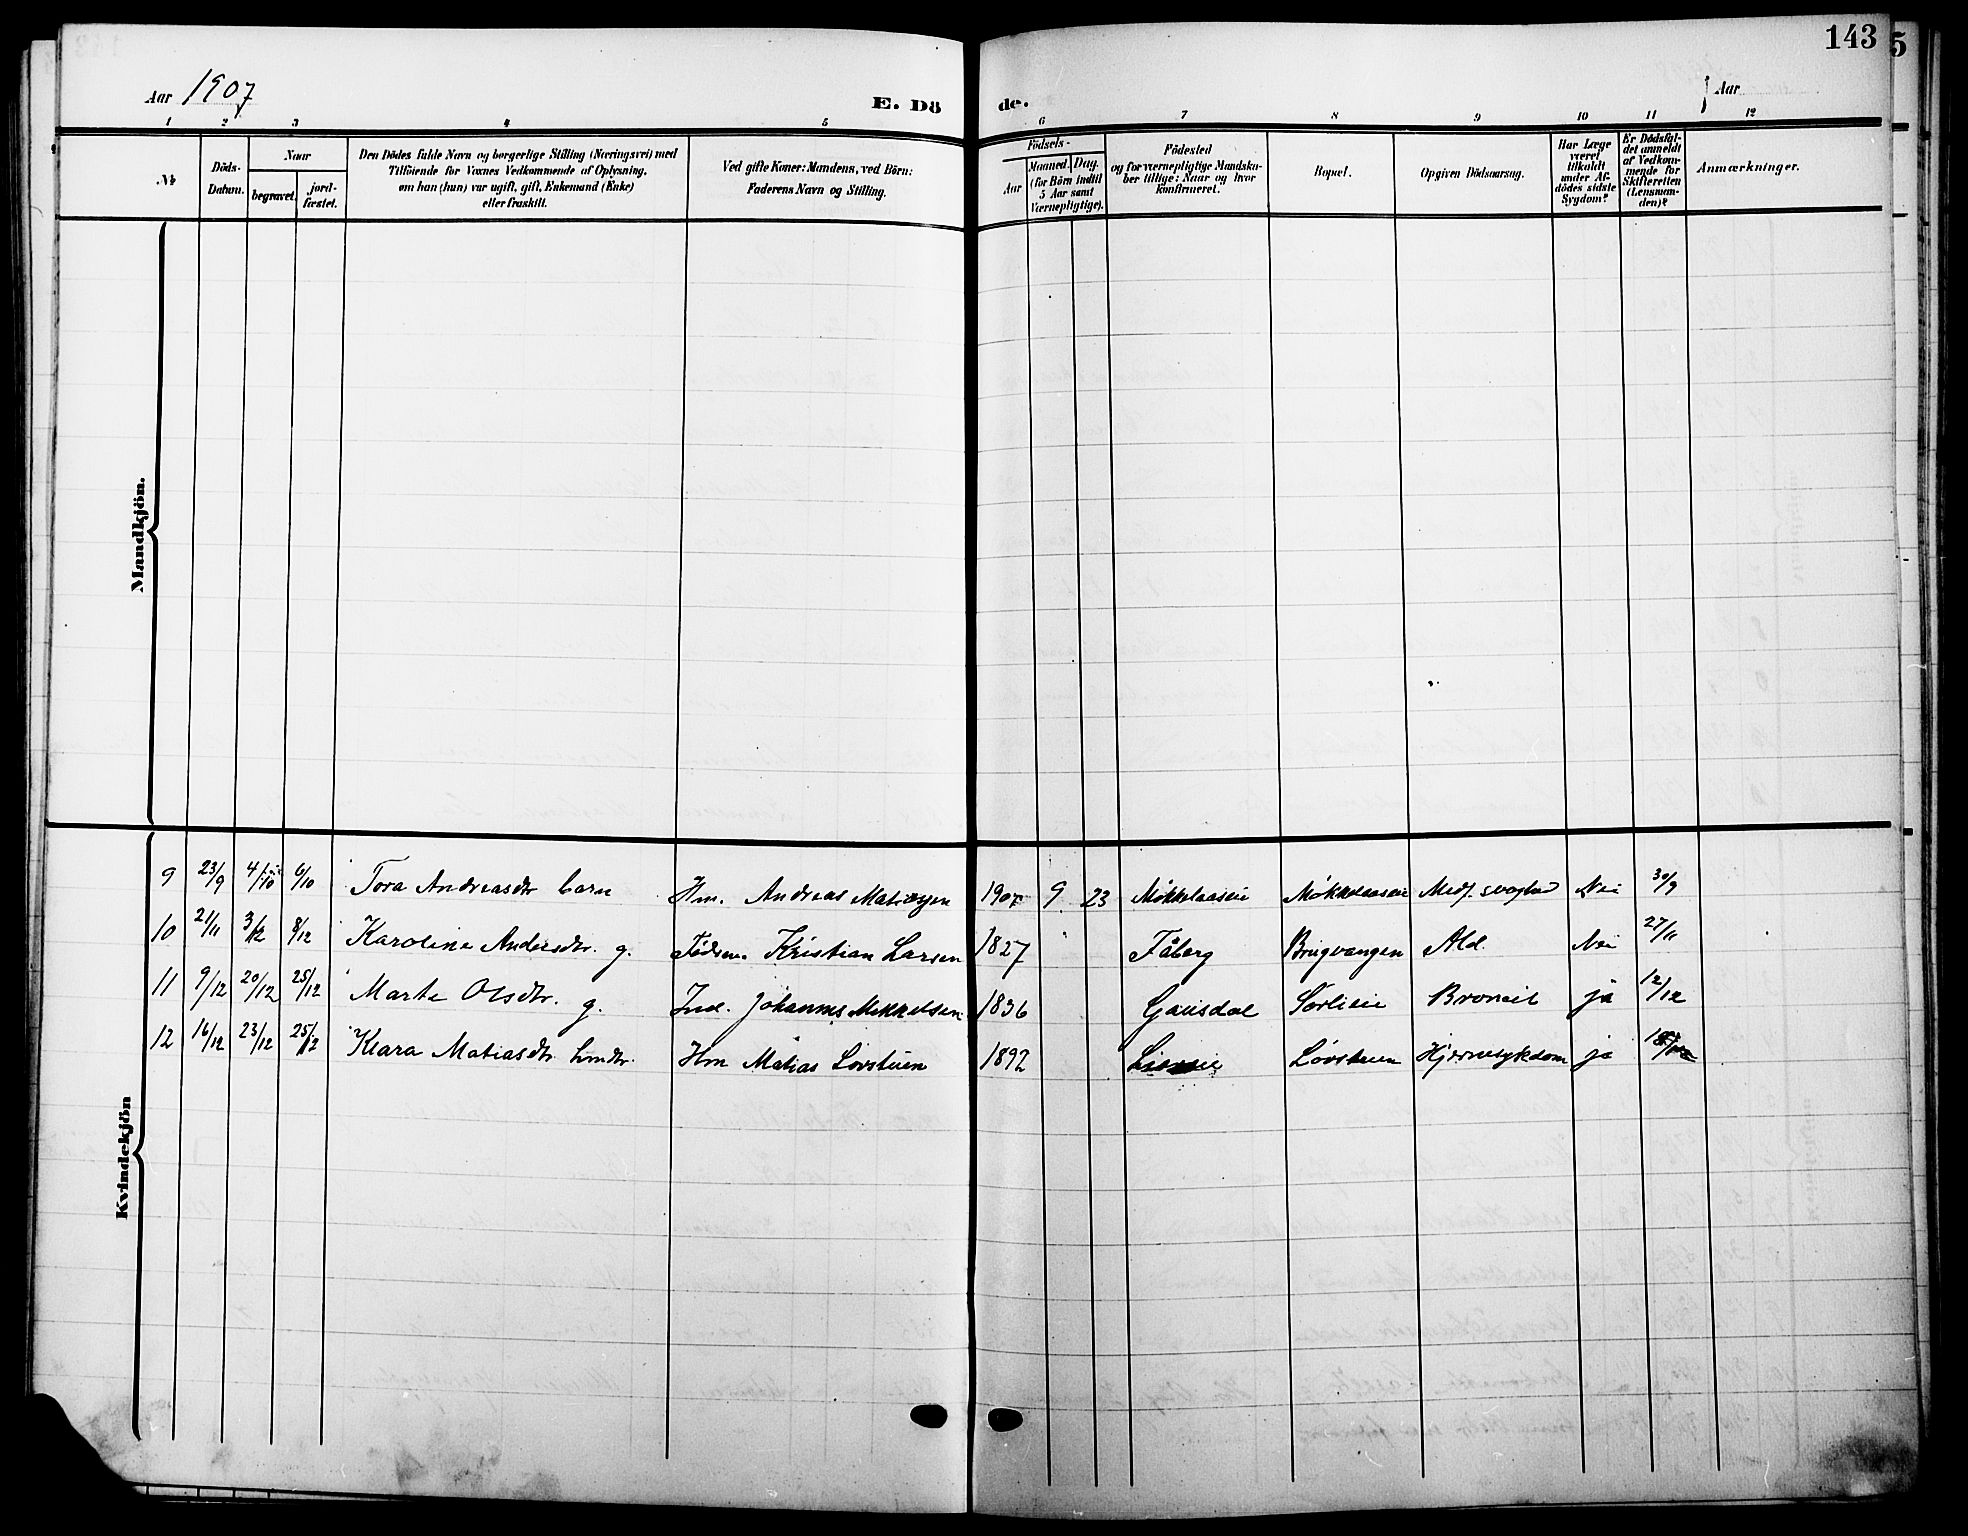 143
5
Aar 1907
E. Dö
de.
Aar
1 2 3 4 5 6 7 8 9 10 11 12
No
Döds-Datum.
Naar
begravet.
jord-fæstet.
Den Dödes fulde Navn og borgerlige Stilling (Næringsvei) med
Tilföiende for Voxnes Vedkommende af Oplysning,
om han (hun) var ugift, gift, Enkemand (Enke)
eller fraskilt.
Ved gifte Koner: Mandens, ved Börn:
Faderens Navn og Stilling.
Födsels-
Aar
Maaned.
Dag.
(for Börn indtil
5 Aar samt
Værnepligtige).
Födested
og for værnepligtige Mandska-
ber tillige: Naar og hvor
konfirmeret.
Bopæl.
Opgiven Dödsaarsag.
Har Læge
været
tilkaldt
under Af-
dödes sidste
Sygdom?
Er Dödsfal-
det anmeldt
af Vedkom-
mende for
Skifteretten
(Lensman-
den)?
Anmærkninger.
Mandkjön.
9 23/9 4/10 6/10 Tora Andreasdtr barn Hm. Andreas Matiassen 1907 9 23 Møkkelaaseie Møkkelaaseie Medf. svaghed Nei 30/9
10 21/11 3/12 8/12 Karoline Andersdtr. g. Kristian Larsen 1827 Fåberg Brugvangen Ald. Nei 27/11
11 9/12 20/12 25/12 Marte Olsdtr. g. Ind. Johannes Mikkelsen 1836 Gausdal Sørlieie Broncit ja 12/12
12 16/12 23/12 25/12 Klara Matiasdtr. Hm Matias Lovstuen 1892 Løvstuen Hjernesykdom ja
Kvindekjön